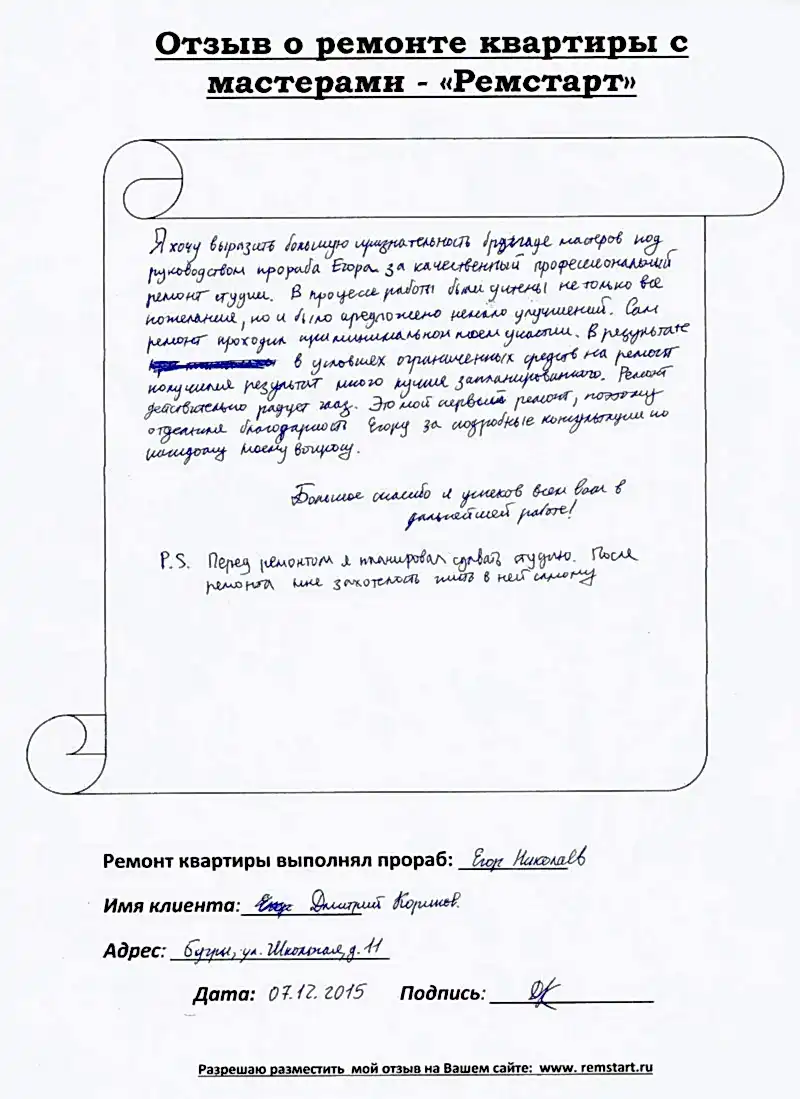 Отзыв о ремонте квартиры с
мастерами - «Ремстарт»
Я хочу выразить большую признательность бригаде мастеров под
руководством прораба Егора за качественный профессиональный
ремонт студии. В процессе работы были учтены не только все
пожелания, но и было предложено немало улучшений. Сам
ремонт проходил при минимальном моем участии. В результате
в условиях ограниченных средств на ремонт
получился результат много лучше запланированного. Ремонт
действительно радует глаз. Это мой первый ремонт, поэтому
отдельная благодарность Егору за подробные консультации по
каждому моему вопросу.
Большое спасибо и успехов всем вам в
дальнейшей работе!
P.S. Перед ремонтом я планировал сдавать студию. После
ремонта мне захотелось жить в ней самому
Ремонт квартиры выполнял прораб: Егор Николаев
Имя клиента: Дмитрий
Адрес: Бугры, ул. Школьная, д. 11
Дата: 07.12.2015 Подпись:
Разрешаю разместить мой отзыв на Вашем сайте: www. remstart.ru